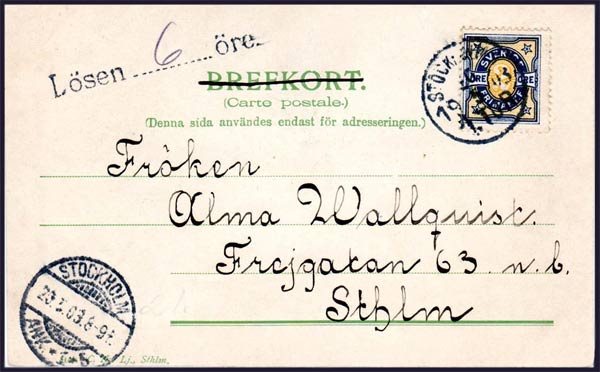 Lösen 6 öre
BREFKORT.
(Carte postale.)
(Denna sida användes endast för adresseringen.)
SVERIGE
ÖRE ÖRE
STOCKHOLM
Fröken
Alma Wallquist.
Frejgatan 63. n. b.
Sthlm
STOCKHOLM
ANK.
Lj., Sthlm.